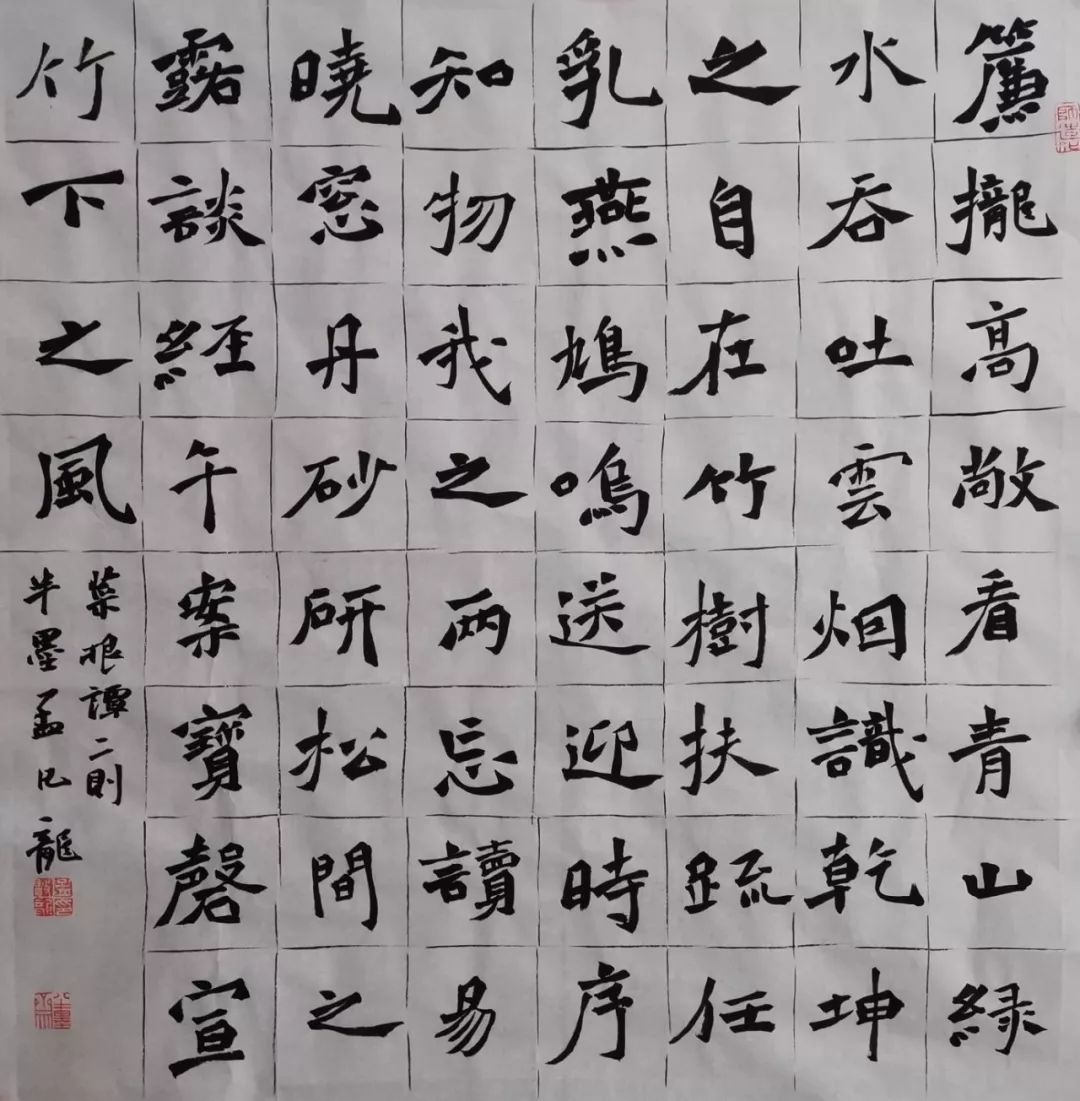 簾攏高敞看青山緑
水吞吐雲烟識乾坤
之自在竹樹扶疏任
乳燕鳩鳴送迎時序
知物我之兩忘讀易
曉窓丹砂研松間之
露談經午案寶磬宣
竹下之風
菜根譚二則
半墨孟凡龍